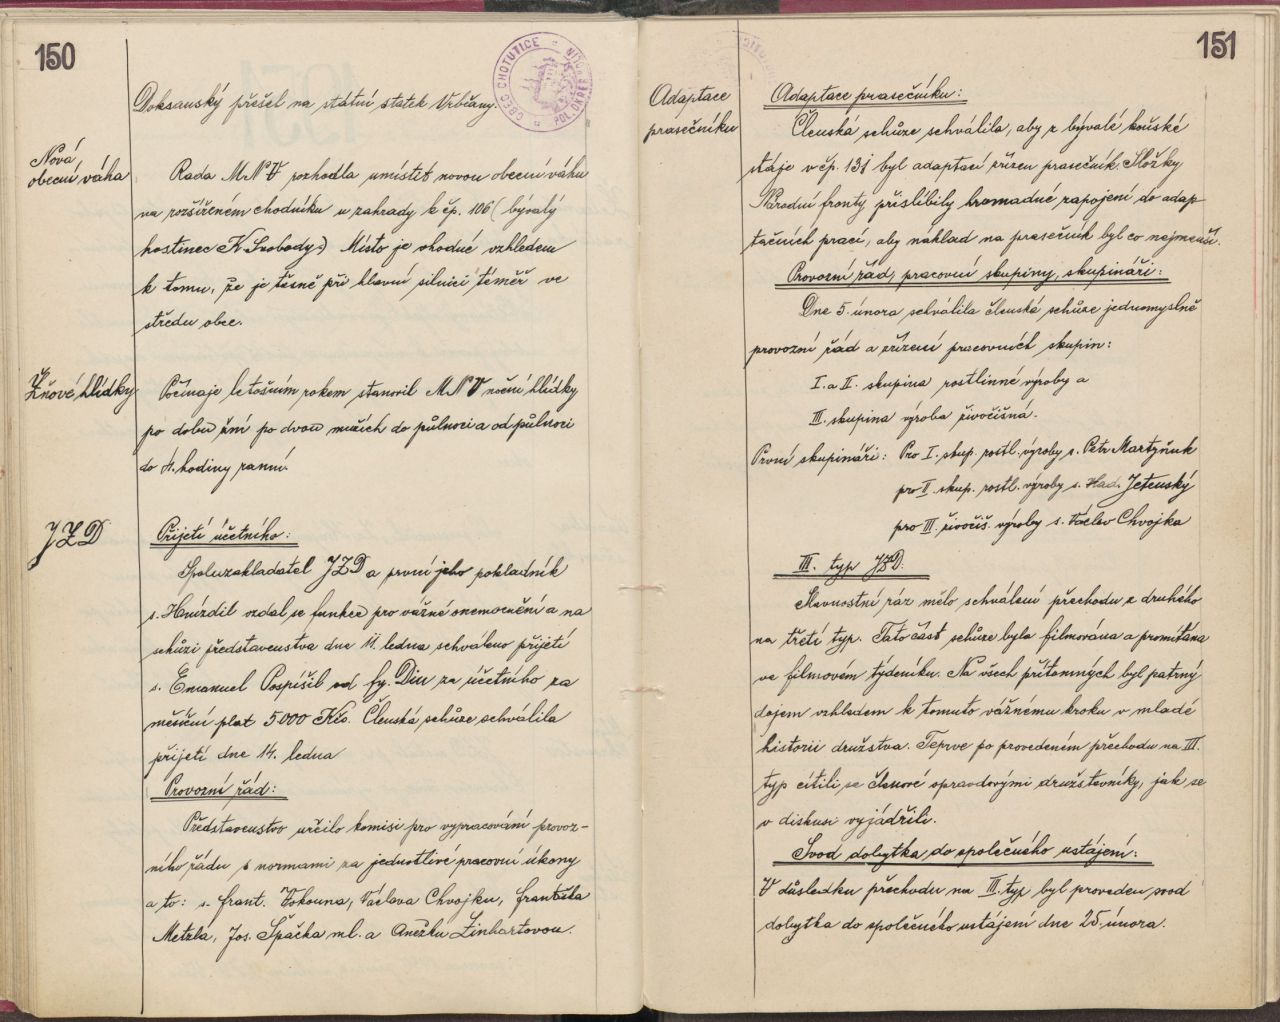 150
OBEC CHOTUTICE
POL. OKRES
Doksanský přešel na státní statek Vrbčany.
Nová
obecní váha
Rada MNV rozhodla umístit novou obecní váhu
na rozšířeném chodníku u zahrady k čp. 106 (bývalý
hostinec K. Svobody.) Místo je vhodné vzhledem
k tomu, že je těsně při hlavní silnici téměř ve
středu obce.
Žňové hlídky
Počínaje letošním rokem stanovil MNV noční hlídky
po dobu žní po dvou mužích do půlnoci a od půlnoci
do 4. hodiny ranní.
JZD
Prijetí účetního:
Spoluzakladatel JZD a první jeho pokladník
s. Hnízdil vzdal se funkce pro vážné onemocnění a na
schůzi představenstva dne 11. ledna schváleno přijetí
s. Emanuel Pospíšil od fy. Diu za účetního za
měsíční plat 5000 Kčs. Členská schůze schválila
přijetí dne 14. ledna
Provozní řád:
Představenstvo určilo komisi pro vypracování provoz-
ního řádu s normami za jednotlivé pracovní úkony
a to: s. Frant. Vokouna, Václava Chvojku, Františka
Metzla, Jos. Špačka ml. a Anežku Linhartovou.
151
Adaptace
prasečníku
Adaptace prasečníku:
Členská schůze schválila, aby z bývalé koňské
stáje v čp. 131 byl adaptací zřízen prasečník. Složky
Národní fronty přislíbily hromadné zapojení do adap
tačních prací, aby náklad na prasečník byl co nejmenší.
Provozní řád, pracovní skupiny, skupináři:
Dne 5. února schválila členská schůze jednomyslně
provozní řád a zřízení pracovních skupin:
I. a II. skupina rostlinné výroby a
III. skupina výroba živočišná.
První skupináři: Pro I. skup. rostl. výroby s. Petr Martyňuk
pro II skup. rostl. výroby s. Vlad. Jetenský
pro III. živočiš. výroby s. Václav Chvojka
III. typ JZD:
Slavnostní ráz mělo schválení přechodu z druhého
na třetí typ. Tato část schůze byla filmována a promítána
ve filmovém týdeníku. Na všech přítomných byl patrný
dojem vzhledem k tomuto vážnému kroku v mladé
historii družstva. Teprve po provedením přechodu na III.
typ cítili se členové opravdovými družstevníky, jak se
v diskusi vyjádřili.
Svod dobytka do společného ustájení:
V důsledku přechodu na III. typ byl proveden svod
dobytka do společného ustájení dne 25. února.